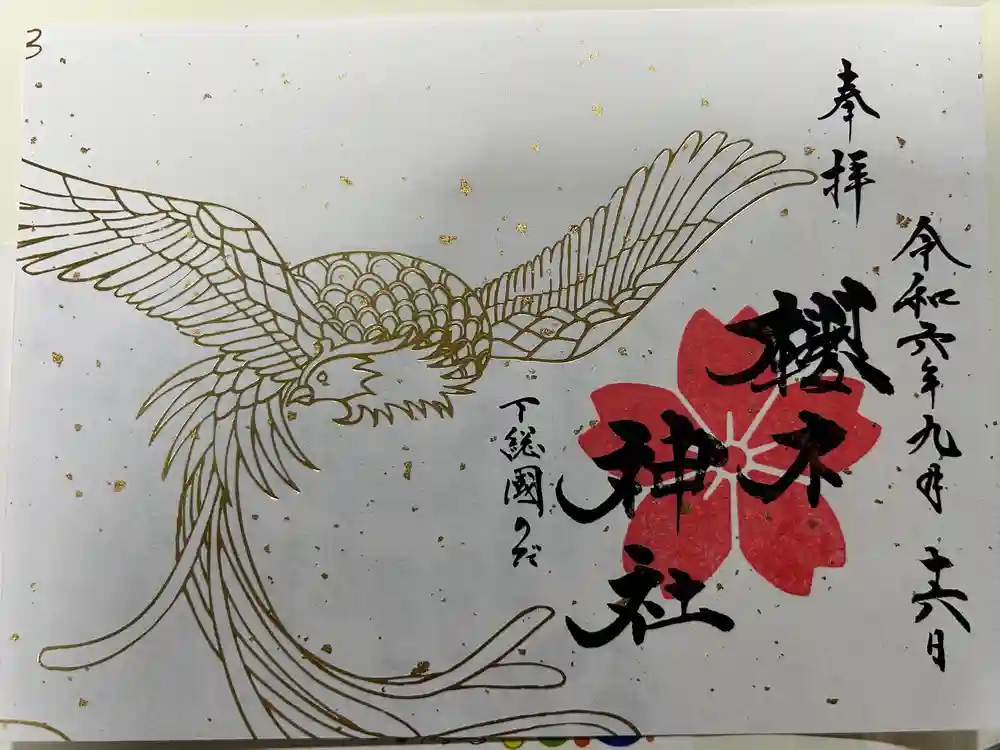 3
奉拝
令和六年九月十六日
櫻木
神社
下総國のだ